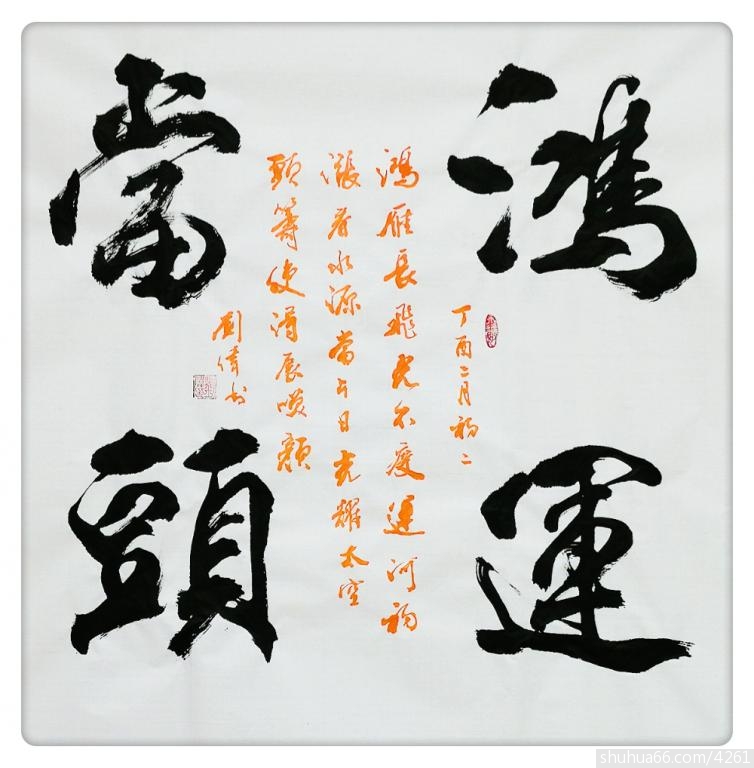 鴻運
當頭
丁酉二月初二
鴻雁長飛光不度運河初
漲水源當午日光耀太空
頭籌使得展顏
劉倩书
shuhua66.com/4261